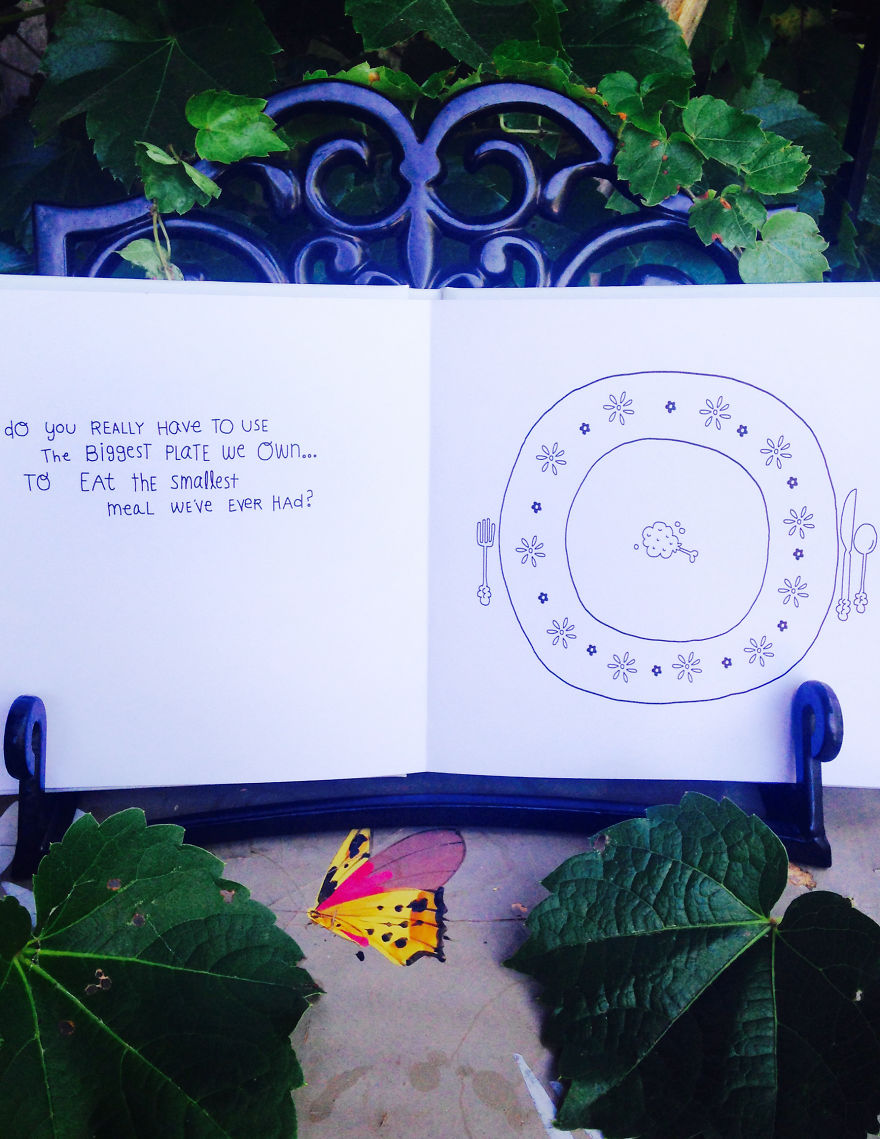 dO you REALLY HavE TO USE
The BiggesT PLATE we Own...
TO EAt thE smallest
meaL we've EvER HAd?